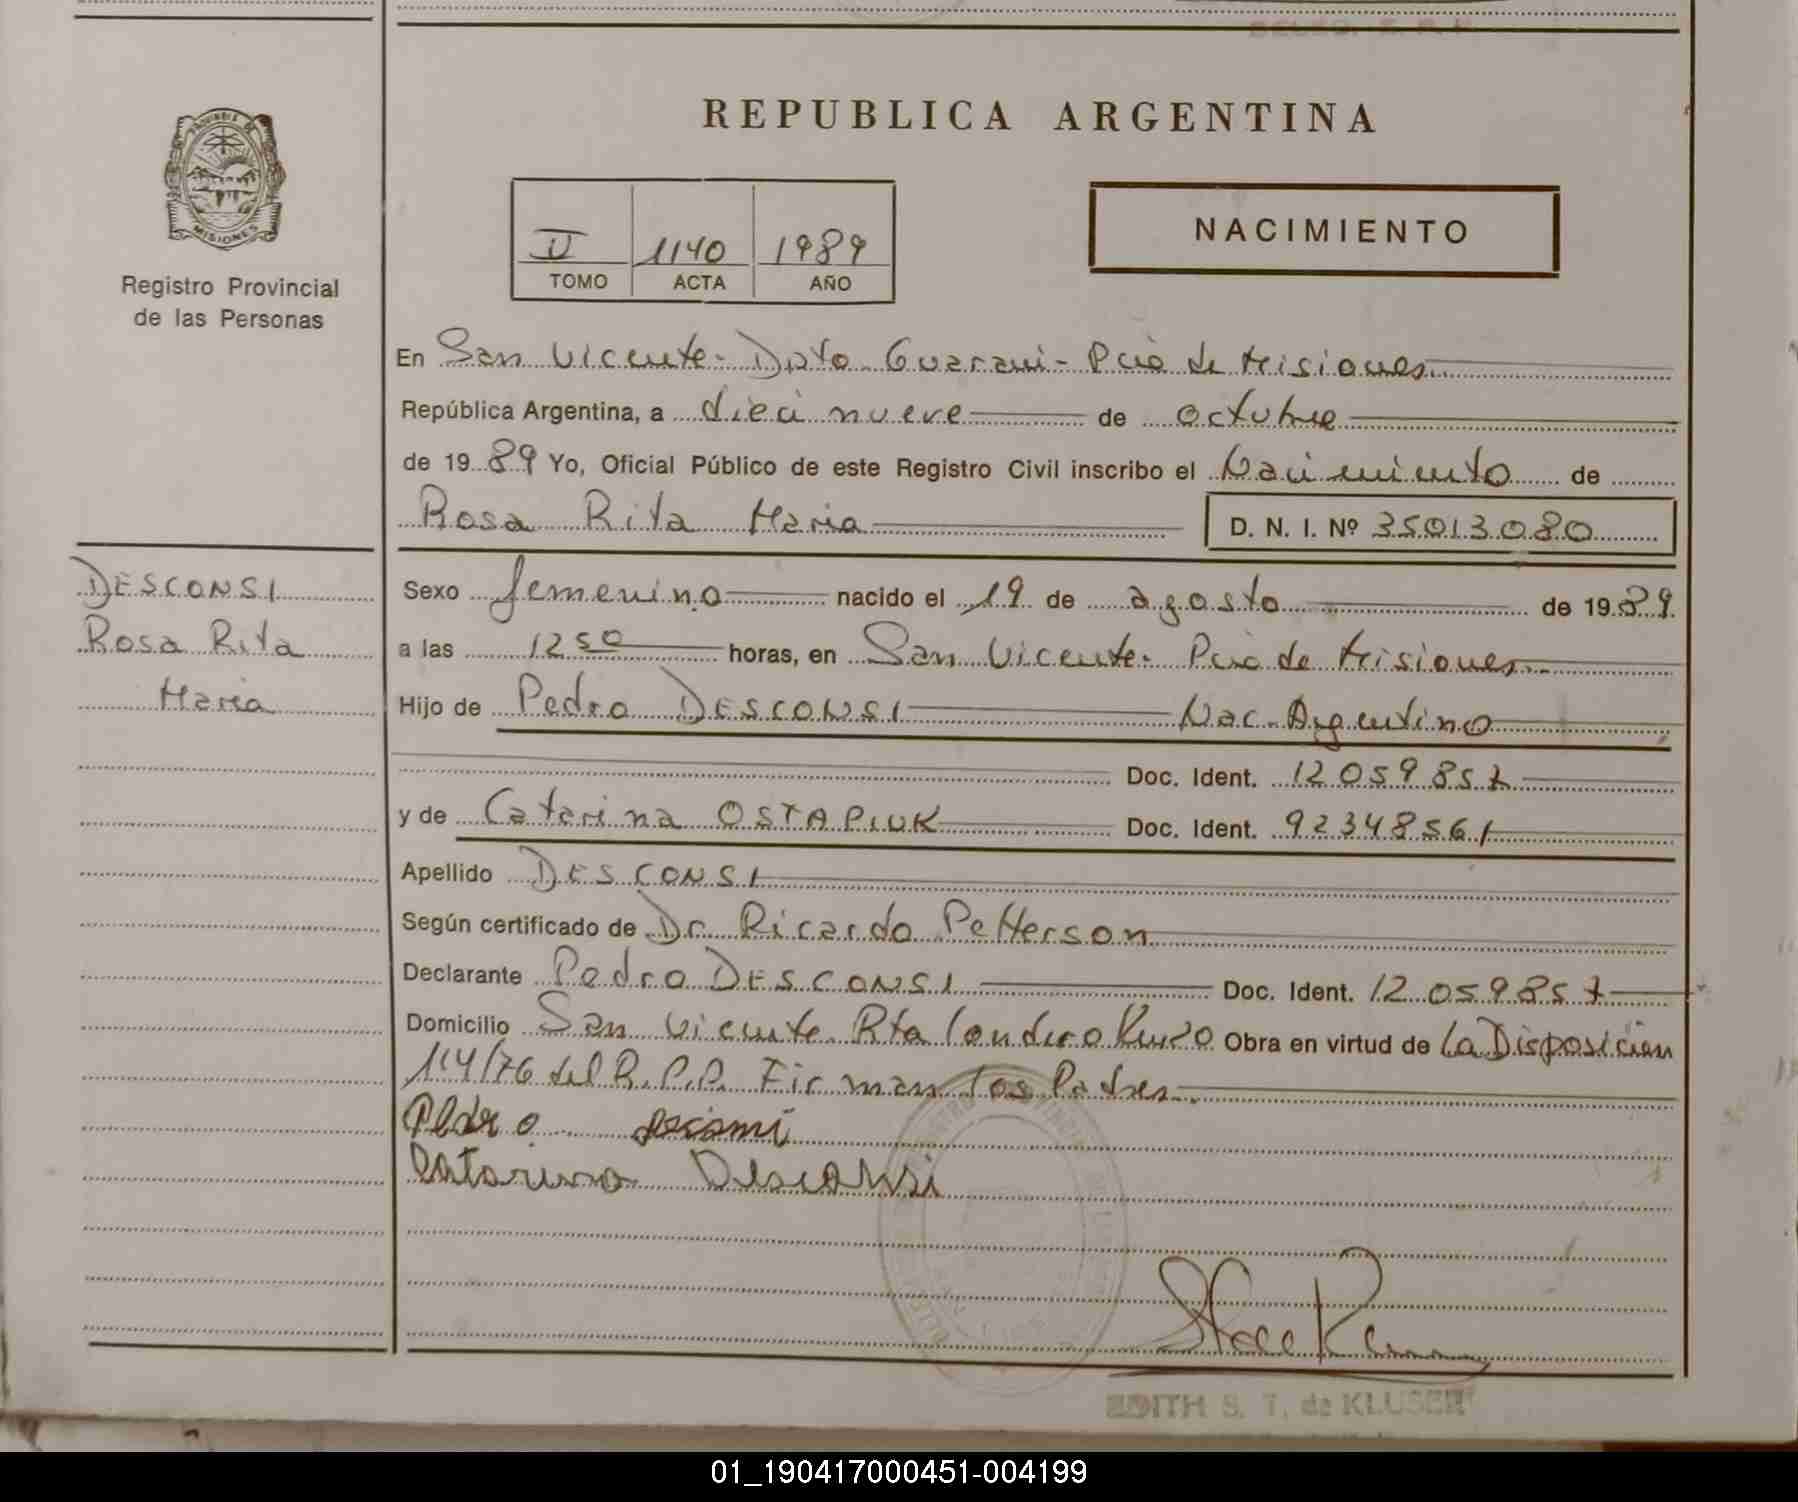 REPUBLICA ARGENTINA
PROVINCIA DE
MISIONES
Registro Provincial
de las Personas
II 1140 1989
TOMO ACTA AÑO
NACIMIENTO
En San Vicente - Dpto. Guarani - Pcia de Misiones
República Argentina, a dieci nueve de octubre
de 1989 Yo, Oficial Público de este Registro Civil inscribo el Nacimiento de
Rosa Rita Maria D. N. I. Nº 35013080
DESCONSI
Rosa Rita
Maria
Sexo femenino nacido el 19 de agosto de 1989
a las 12 50 horas, en San Vicente - Pcia de Misiones
Hijo de Pedro DESCONSI Nac. Argentino
Doc. Ident. 12059857
y de Catarina OSTAPIUK Doc. Ident. 92348561
Apellido DESCONSI
Según certificado de Dr Ricardo Petterson
Declarante Pedro DESCONSI Doc. Ident. 12059857
Domicilio San Vicente Rta Obra en virtud de La Disposicion
114/76 del R.P.P. Firman los Padres
Pedro
Catarina Desconsi
EDITH S. T. de KLUSER
01_190417000451-004199